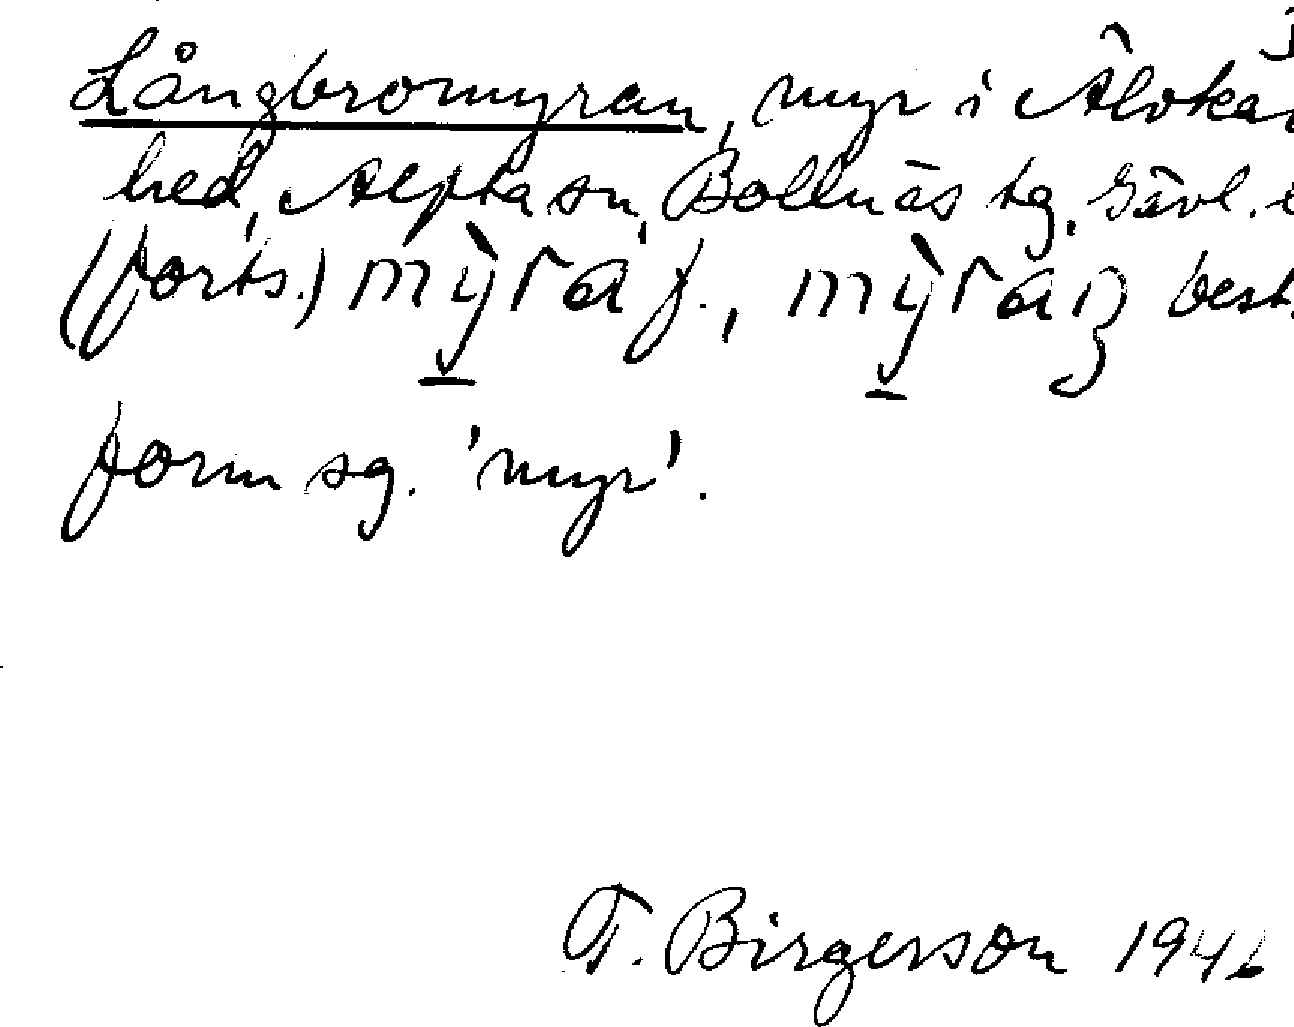 Långbromyran, myr i Älvkar
hed, Alfta sn, Bollnäs tg, Gävl. l
(forts.) mỳra f., mỳraꞃ best.
form sg. 'myr'.
T. Birgerson 1946